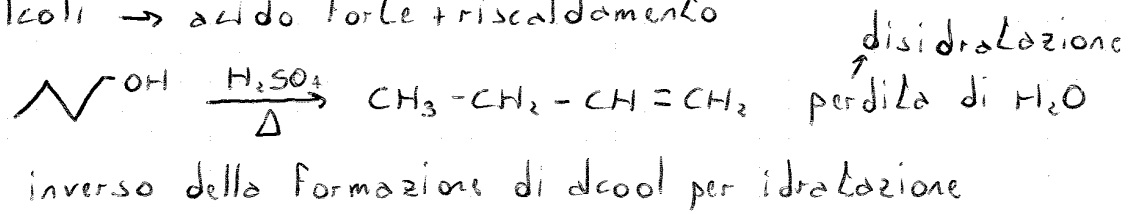 lcoli → acido forte + riscaldamento
disidratazione
OH H₂SO₄ Δ CH₃-CH₂-CH=CH₂ perdita di H₂O
inverso della formazione di alcool per idratazione